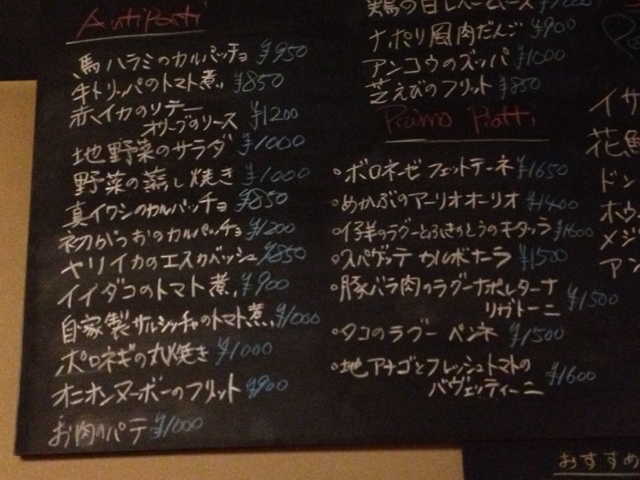 AntiPasti
馬ハラミのカルパッチョ ¥950
牛トリッパのトマト煮 ¥850
赤イカのソテー
オリーブのソース ¥1200
地野菜のサラダ ¥1000
野菜の蒸し焼き ¥1000
真イワシのカルパッチョ ¥850
初がつおのカルパッチョ ¥1200
ヤリイカのエスカベッシュ ¥850
イイダコのトマト煮 ¥900
自家製サルシッチャのトマト煮 ¥1000
ポロネギの丸焼き ¥1000
オニオンヌーボーのフリット ¥900
お肉のパテ ¥1000
ナポリ風肉だんご ¥900
アンコウのズッパ ¥1000
芝えびのフリット ¥850
Primo Piatti
・ボロネーゼ フェットチーネ ¥1650
・めかぶのアーリオオーリオ ¥1400
・仔羊のラグーとふきのとうのキタッラ ¥1600
・スパゲッティ カルボナーラ ¥1500
・豚バラ肉のラグーナポレターナ
リガトーニ ¥1500
・タコのラグー ペンネ ¥1500
・地アナゴとフレッシュトマトの
バヴェッティーニ ¥1600
イサ
花
ドン
ホウ
メジ
アン
おすすめ